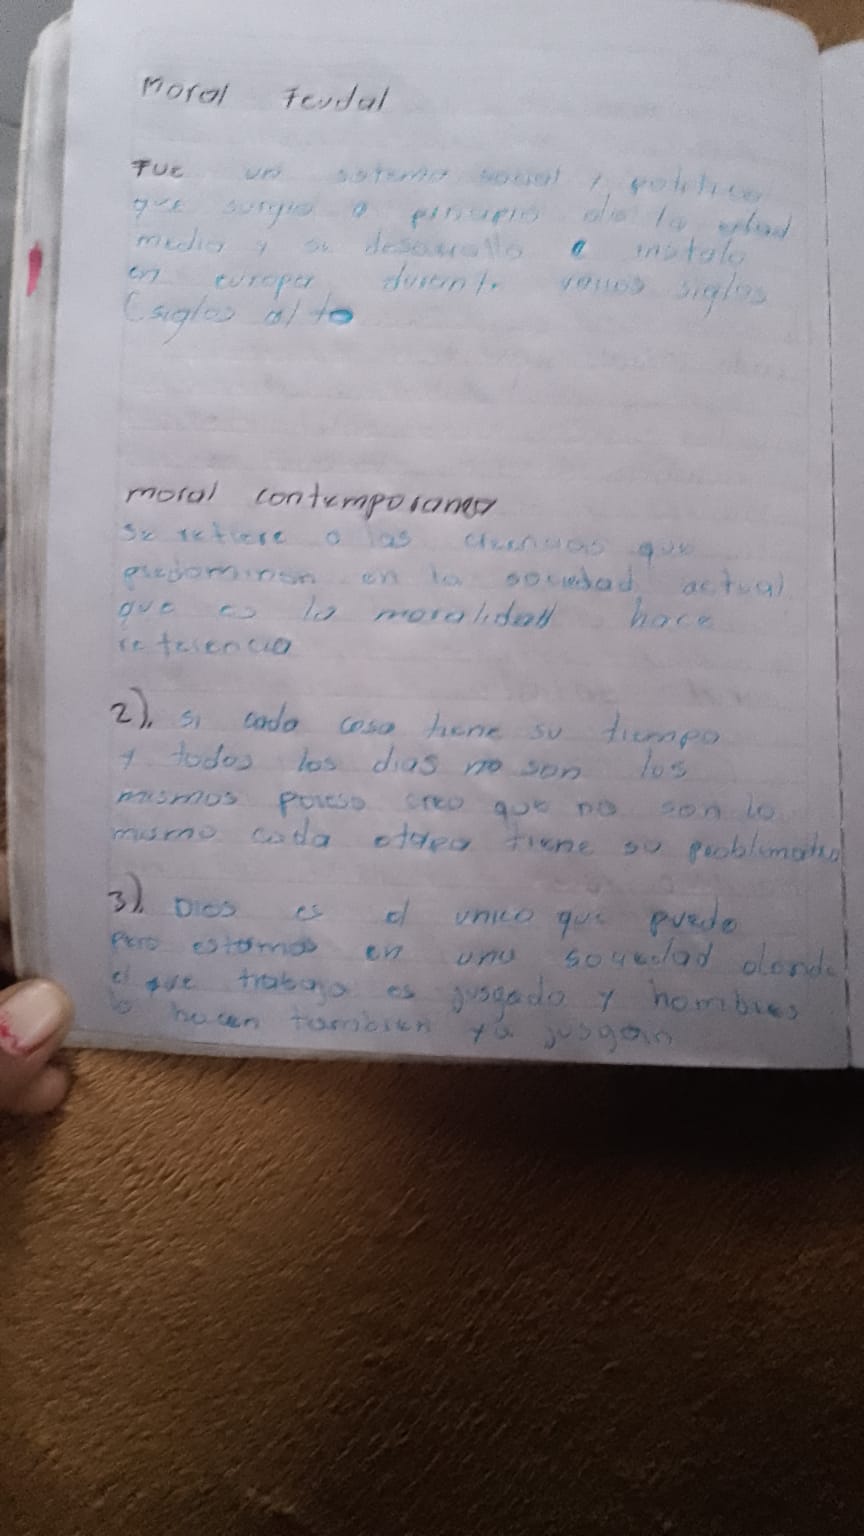 Moral Feudal
Fue un sistema social y politico
que surgio a principio de la edad
media y su desarrollo e instalo
en europa durante varios siglos
(siglos al to
moral contemporanea
se refiere a las creencias que
predominan en la sociedad actual
que es la moralidad hace
referencia
2). si cada cosa tiene su tiempo
y todos los dias no son los
mismos poreso creo que no son lo
mismo cada etapa tiene su problematica
3). Dios es el unico que puede
pero estamos en una sociedad donde
el que trabaja es jusgado y hombres
lo hacen tambien ya jusgan